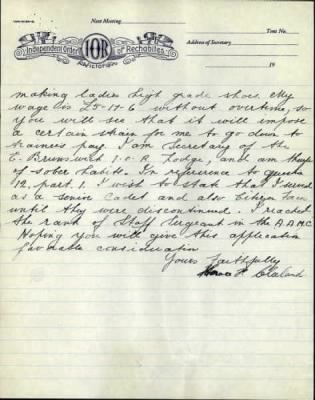 Next Meeting
Tent No.
Independent Order IOR of Rechabites
Victorian
Address of Secretary
19
making ladies high grade shoes. My
wage is £5-17-6 without overtime, so
you will see that it will impose
a certain strain for me to go down to
trainees pay. I am Secretary of the
E. Brunswick I.O.R. Lodge, and am therefore
of sober habits. In reference to question
12, part 1, I wish to state that I served
as a senior Cadet and also Citizen Forces
until they were discontinued. I reached
the rank of Staff Sergeant in the A.A.M.C.
Hoping you will give this application
favorable consideration
Yours Faithfully